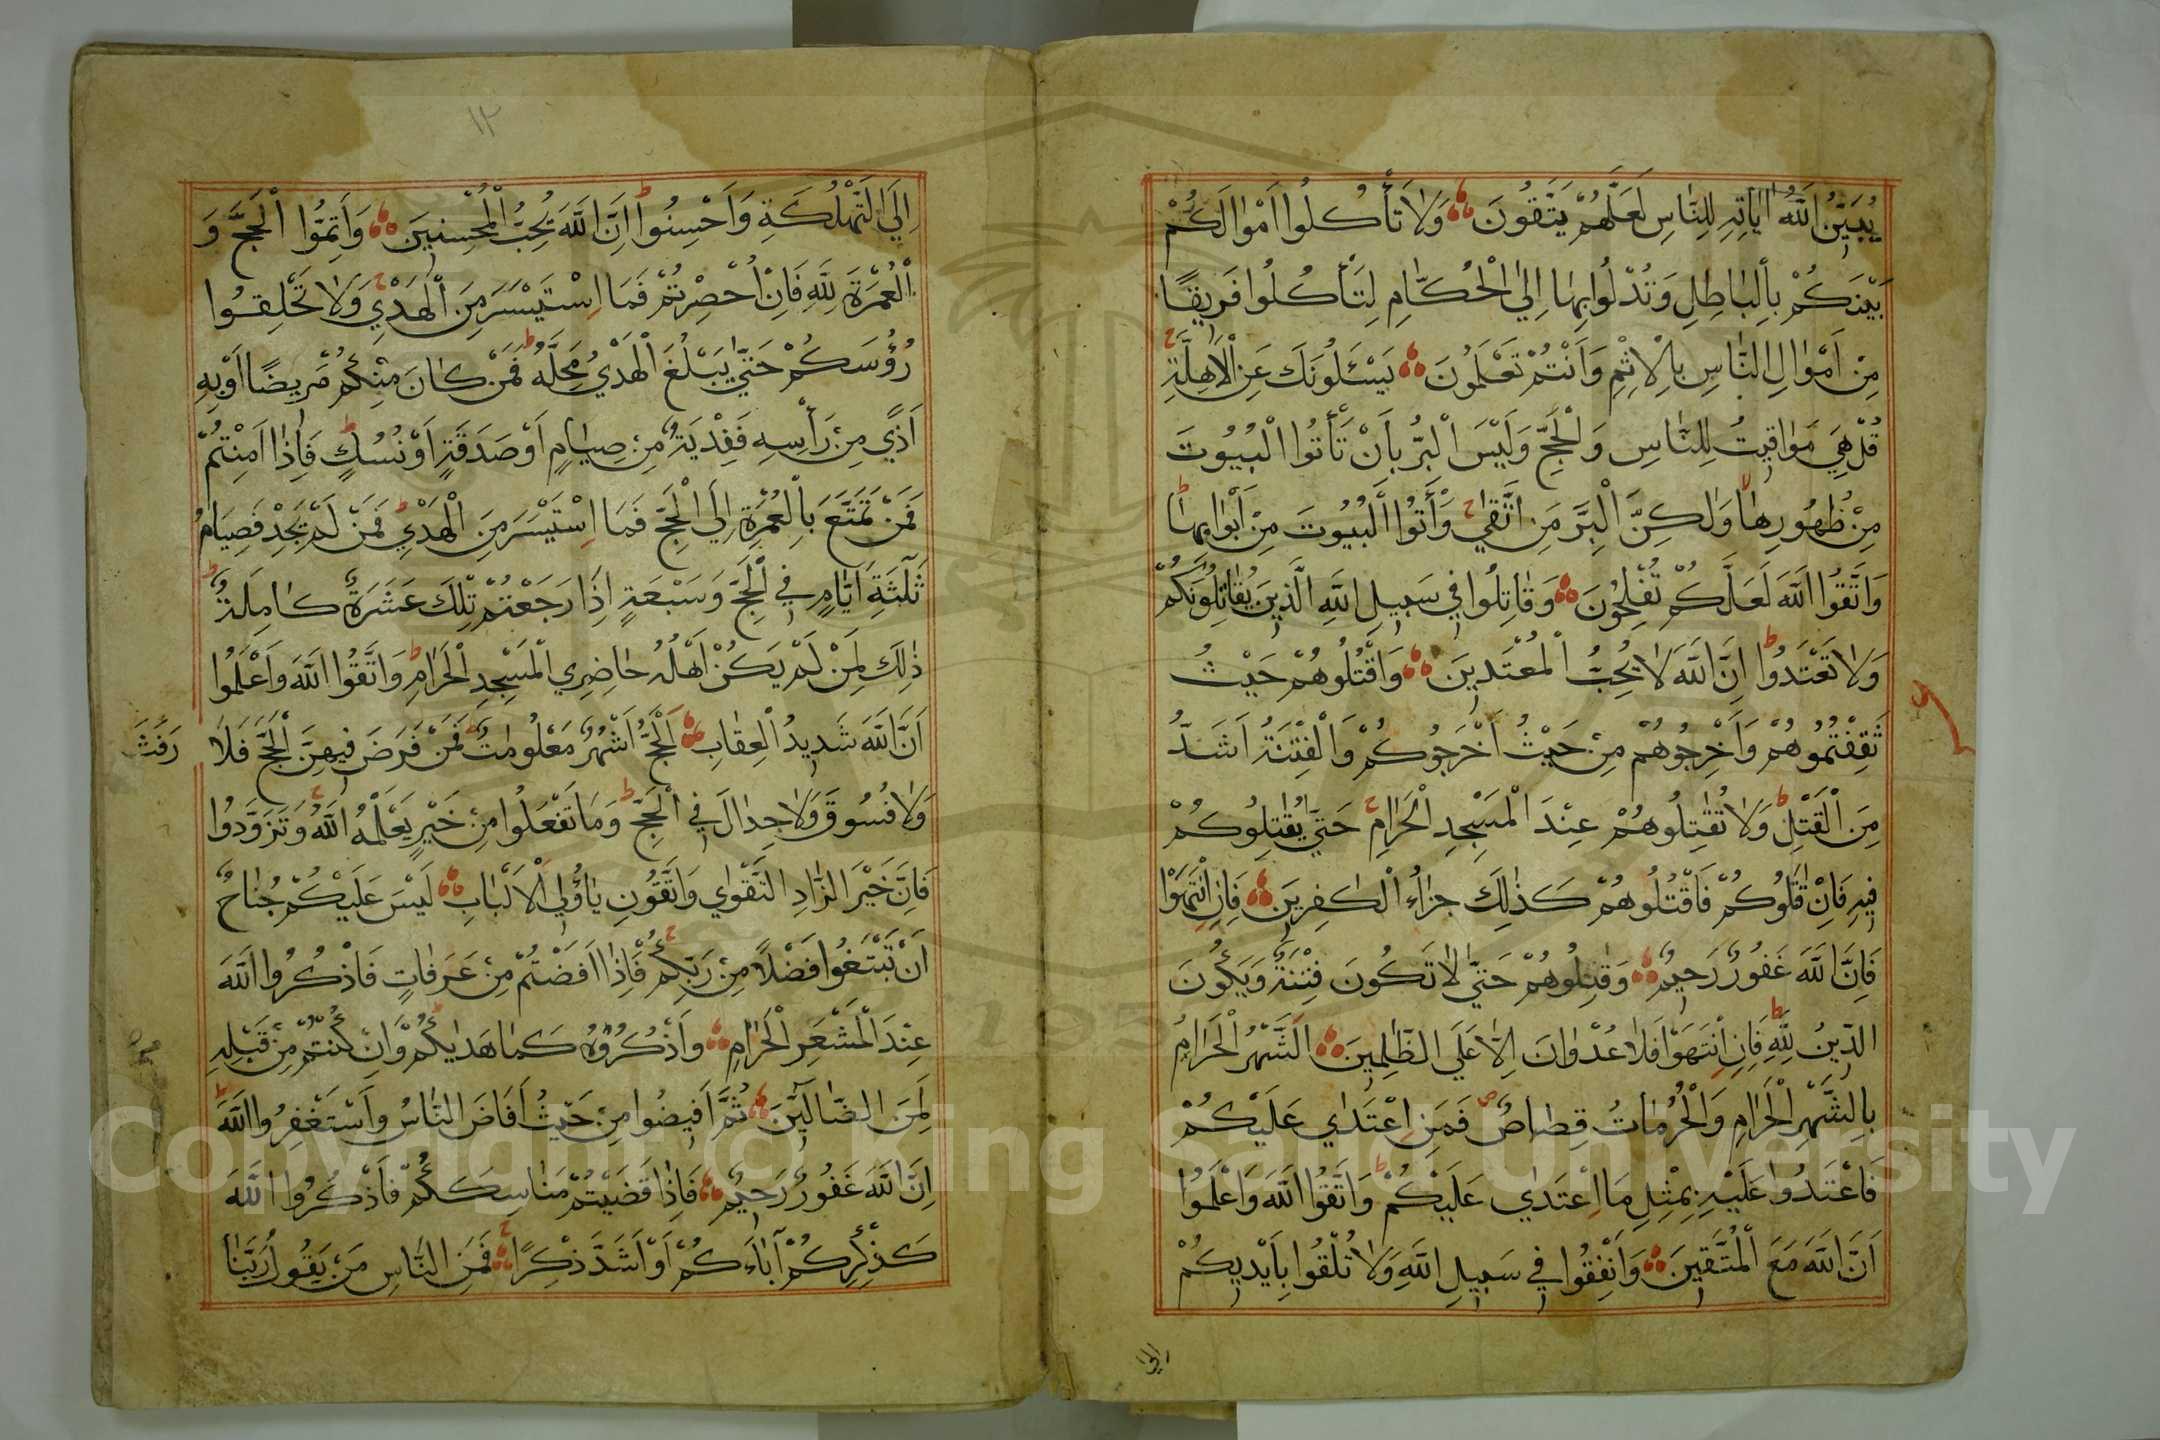 يُبَيِّنُ اللَّهُ اٰيَاتِهِ لِلنَّاسِ لَعَلَّهُمْ يَتَّقُونَ وَلَا تَأْكُلُوا اَمْوَالَكُمْ
بَيْنَكُمْ بِالْبَاطِلِ وَتُدْلُوا بِهَا اِلَى الْحُكَّامِ لِتَأْكُلُوا فَرِيقًا
مِنْ اَمْوَالِ النَّاسِ بِالْاِثْمِ وَاَنْتُمْ تَعْلَمُونَ يَسْئَلُونَكَ عَنِ الْاَهِلَّةِ
قُلْ هِيَ مَوَاقِيتُ لِلنَّاسِ وَالْحَجِّ وَلَيْسَ الْبِرُّ بِاَنْ تَأْتُوا الْبُيُوتَ
مِنْ ظُهُورِهَا وَلٰكِنَّ الْبِرَّ مَنِ اتَّقٰى وَأْتُوا الْبُيُوتَ مِنْ اَبْوَابِهَا
وَاتَّقُوا اللَّهَ لَعَلَّكُمْ تُفْلِحُونَ وَقَاتِلُوا فِي سَبِيلِ اللَّهِ الَّذِينَ يُقَاتِلُونَكُمْ
وَلَا تَعْتَدُوا اِنَّ اللَّهَ لَا يُحِبُّ الْمُعْتَدِينَ وَاقْتُلُوهُمْ حَيْثُ
ثَقِفْتُمُوهُمْ وَاَخْرِجُوهُمْ مِنْ حَيْثُ اَخْرَجُوكُمْ وَالْفِتْنَةُ اَشَدُّ
مِنَ الْقَتْلِ وَلَا تُقٰتِلُوهُمْ عِنْدَ الْمَسْجِدِ الْحَرَامِ حَتّٰى يُقٰتِلُوكُمْ
فِيهِ فَاِنْ قٰتَلُوكُمْ فَاقْتُلُوهُمْ كَذٰلِكَ جَزَاءُ الْكٰفِرِينَ فَاِنِ انْتَهَوْا
فَاِنَّ اللَّهَ غَفُورٌ رَحِيمٌ وَقٰتِلُوهُمْ حَتّٰى لَا تَكُونَ فِتْنَةٌ وَيَكُونَ
الدِّينُ لِلَّهِ فَاِنِ انْتَهَوْا فَلَا عُدْوَانَ اِلَّا عَلَى الظَّالِمِينَ اَلشَّهْرُ الْحَرَامُ
بِالشَّهْرِ الْحَرَامِ وَالْحُرُمَاتُ قِصَاصٌ فَمَنِ اعْتَدٰى عَلَيْكُمْ
فَاعْتَدُوا عَلَيْهِ بِمِثْلِ مَا اعْتَدٰى عَلَيْكُمْ وَاتَّقُوا اللَّهَ وَاعْلَمُوا
اَنَّ اللَّهَ مَعَ الْمُتَّقِينَ وَاَنْفِقُوا فِي سَبِيلِ اللَّهِ وَلَا تُلْقُوا بِاَيْدِيكُمْ
الى
١٢
اِلَى التَّهْلُكَةِ وَاَحْسِنُوا اِنَّ اللَّهَ يُحِبُّ الْمُحْسِنِينَ وَاَتِمُّوا الْحَجَّ وَ
الْعُمْرَةَ لِلَّهِ فَاِنْ اُحْصِرْتُمْ فَمَا اسْتَيْسَرَ مِنَ الْهَدْيِ وَلَا تَحْلِقُوا
رُؤُسَكُمْ حَتّٰى يَبْلُغَ الْهَدْيُ مَحِلَّهُ فَمَنْ كَانَ مِنْكُمْ مَرِيضًا اَوْ بِهِ
اَذًى مِنْ رَأْسِهِ فَفِدْيَةٌ مِنْ صِيَامٍ اَوْ صَدَقَةٍ اَوْ نُسُكٍ فَاِذَا اَمِنْتُمْ
فَمَنْ تَمَتَّعَ بِالْعُمْرَةِ اِلَى الْحَجِّ فَمَا اسْتَيْسَرَ مِنَ الْهَدْيِ فَمَنْ لَمْ يَجِدْ فَصِيَامُ
ثَلٰثَةِ اَيَّامٍ فِي الْحَجِّ وَسَبْعَةٍ اِذَا رَجَعْتُمْ تِلْكَ عَشَرَةٌ كَامِلَةٌ
ذٰلِكَ لِمَنْ لَمْ يَكُنْ اَهْلُهُ حَاضِرِي الْمَسْجِدِ الْحَرَامِ وَاتَّقُوا اللَّهَ وَاعْلَمُوا
اَنَّ اللَّهَ شَدِيدُ الْعِقَابِ اَلْحَجُّ اَشْهُرٌ مَعْلُومَاتٌ فَمَنْ فَرَضَ فِيهِنَّ الْحَجَّ فَلَا رَفَثَ
وَلَا فُسُوقَ وَلَا جِدَالَ فِي الْحَجِّ وَمَا تَفْعَلُوا مِنْ خَيْرٍ يَعْلَمْهُ اللَّهُ وَتَزَوَّدُوا
فَاِنَّ خَيْرَ الزَّادِ التَّقْوٰى وَاتَّقُونِ يَا اُولِي الْاَلْبَابِ لَيْسَ عَلَيْكُمْ جُنَاحٌ
اَنْ تَبْتَغُوا فَضْلًا مِنْ رَبِّكُمْ فَاِذَا اَفَضْتُمْ مِنْ عَرَفَاتٍ فَاذْكُرُوا اللَّهَ
عِنْدَ الْمَشْعَرِ الْحَرَامِ وَاذْكُرُوهُ كَمَا هَدٰيكُمْ وَاِنْ كُنْتُمْ مِنْ قَبْلِهِ
لَمِنَ الضَّالِّينَ ثُمَّ اَفِيضُوا مِنْ حَيْثُ اَفَاضَ النَّاسُ وَاسْتَغْفِرُوا اللَّهَ
اِنَّ اللَّهَ غَفُورٌ رَحِيمٌ فَاِذَا قَضَيْتُمْ مَنَاسِكَكُمْ فَاذْكُرُوا اللَّهَ
كَذِكْرِكُمْ اٰبَاءَكُمْ اَوْ اَشَدَّ ذِكْرًا فَمِنَ النَّاسِ مَنْ يَقُولُ رَبَّنَا
Copyright © King Saud University